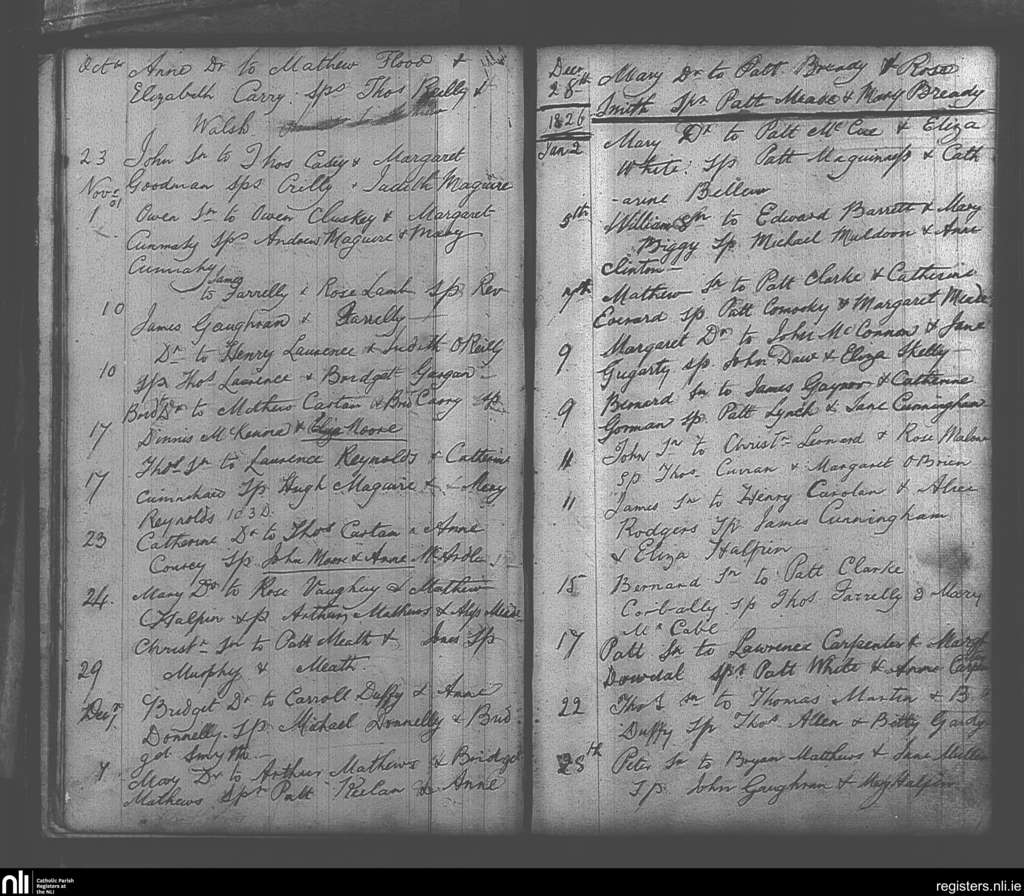 Octbr Anne Dr to Mathew Flood &
Elizabeth Carry. sps Thos Reilly &
Walsh
23 John Sn to Thos Casey & Margaret
Goodman sps Crilly & Judith Maguire
Novr 01
1 Owen Sn to Owen Cluskey & Margaret
Cunnahy Sps Andrew Maguire & Mary
Cunnahy
James
10 to Farrelly & Rose Lamb Sp Rev
James Gaughran & Farrelly
10 Dr to Henry Laurence & Judith O'Reilly
sps Thos Laurence & Bridget Gargan
Bridt Dr to Mathew Cartan & Brid Carry Sp
17 Dinnis McKenna & Eliza Moore
17 Thos Sn to Laurence Reynolds & Catherine
Sp Hugh Maguire & Mary
Reynolds 1s.3D.
23 Catherine Dr to Thos Cartan & Anne
Convey Sp John Moore & Anne McArdle
24. Mary Dr to Rose Vaughey & Mathew
Halpin & sp Arthur Mathews & Alys Meade
Christr Sn to Patt Meath & Jones Sp
29 Murphy & Meath
Decr 1 Bridget Dr to Carroll Duffy & Anne
Donnelly Sp Michael Donnelly & Brid-
get Smyth
7 Mary Dr to Arthur Mathews & Bridget
Mathews Spr Patt Keelan & Anne
Decr 28th Mary Dr to Patt Bready & Rose
Smith Spr Patt Meade & Mary Bready
1826
Jan 2 Mary Dr to Patt McCue & Eliza
White: Sp Patt Maguinness & Cath
-arine Bellew
5th William Sn to Edward Barrett & Mary
Biggy Sp Michael Muldoon & Anne
Clinton
7th Mathew Sn to Patt Clarke & Catherine
Everard sp Patt Comosky & Margaret Meade
9 Margaret Dr to John McConnon & Jane
Gugarty sp. John Daw & Eliza Skelly
9 Bernard Sn to James Gaynor & Catherine
Gorman sp Patt Lynch & Jane Cunningham
11 John Sn to Christr Leonard & Rose Malone
Sp Thos. Curran & Margaret OBrien
11 James Sn to Henry Carolan & Alice
Rodgers Sp James Cunningham
& Eliza Halpin
15 Bernard Sn to Patt Clarke
Corbally sp Thos Farrelly & Mary
McCabe
17 Patt Sn to Lawrence Carpenter & Margt
Dowdal Sps Patt White & Anne
22 Thos Sn to Thomas Martin & B
Duffy Sp Thos. Allen & Betty Gandy
28th Peter Sn to Bryan Matthews & Jane Mullen
Sp John Gaughran & Mary Halpin
nli Catholic Parish
Registers at
the NLI
registers.nli.ie